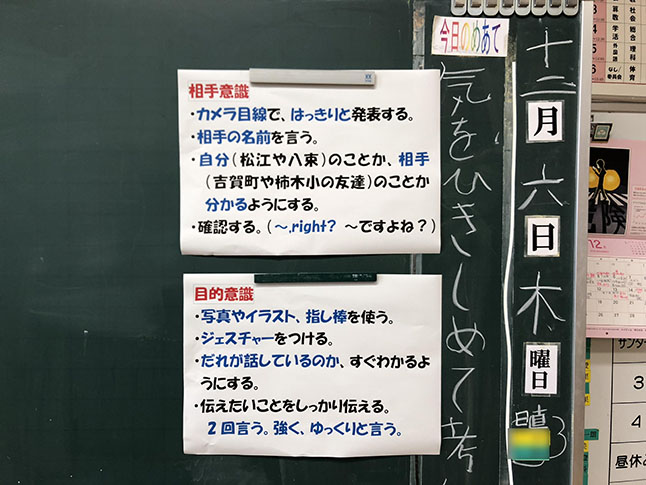 今日のめあて
気をひきしめて考
十二月六日木曜日
相手意識
・カメラ目線で、はっきりと発表する。
・相手の名前を言う。
・自分(松江や八束)のことか、相手
(吉賀町や柿木小の友達)のことか
分かるようにする。
・確認する。(～,right? ～ですよね?)
目的意識
・写真やイラスト、指し棒を使う。
・ジェスチャーをつける。
・だれが話しているのか、すぐわかるよ
うにする。
・伝えたいことをしっかり伝える。
2回言う。強く、ゆっくりと言う。
算数
社会
学活
総合
外国語
理科
なし/委員会
体育
12
3
4
昼休